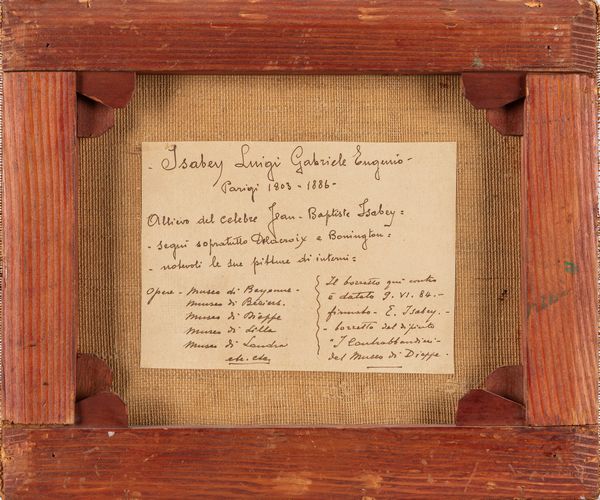 - Isabey Luigi Gabriele Eugenio -
Parigi 1803 - 1886 -
Allievo del celebre Jean - Baptiste Isabey =
- seguì sopratutto Delacroix e Bonington =
- notevoli le sue pitture di interni =
Opere - Museo di Bayonne -
Museo di Béziers.
Museo di Dieppe
Museo di Lilla
Museo di Londra
etc. etc.
Il bozzetto qui contro
è datato 9. VI. 84. -
firmato - E. Isabey. -
- bozzetto del dipinto
"I Contrabbandieri -
del Museo di Dieppe.